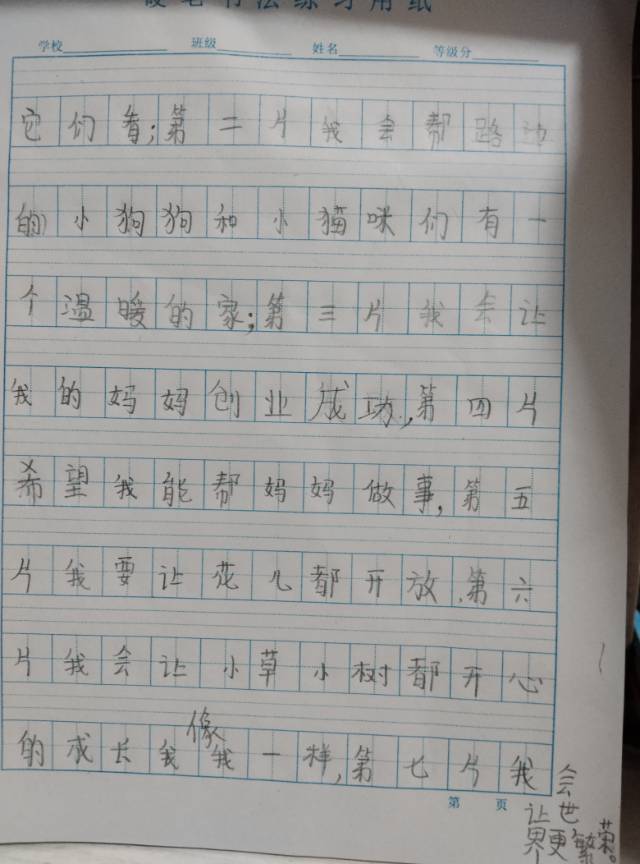 硬笔书法练习用纸
学校 班级 姓名 等级分
它们看;第二片我会帮路边
的小狗狗和小猫咪们有一
个温暖的家;第三片我会让
我的妈妈创业成功,第四片
希望我能帮妈妈做事,第五
片我要让花儿都开放.第六
片我会让小草小树都开心
的成长我像我一样,第七片我会
让世
界更繁荣。
第 页